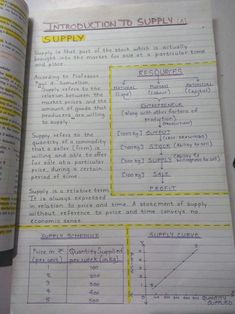 INTRODUCTION TO SUPPLY
SUPPLY
Supply is that part of the stock which is actually
brought into the market for sale at a particular time
and place.
According to Professor
Paul A. Samuelson,
"Supply refers to the
relation between the
market prices and the
amount of goods that
producers are willing
to supply."
Supply refers to the
quantity of a commodity
that a seller (firm) is
willing and able to offer
for sale at a particular
price, during a certain
period of time.
Supply is a relative term.
It is always expressed
in relation to price and time. A statement of supply
without reference to price and time conveys no
economic sense.
RESOURCES
NATURAL HUMAN
(Land) (Labour) (Capital)
ENTREPRENEUR
(along with other factors of
production)
[100 kg] OUTPUT
[100 kg] STOCK (Ability to sell)
SUPPLY
SALE
PROFIT
SUPPLY SCHEDULE
Price in ₹ Quantity Supplied
(per unit) per week (in kg)
1 100
2 200
3 300
4 400
5 500
SUPPLY CURVE
QUANTITY
SUPPLIED